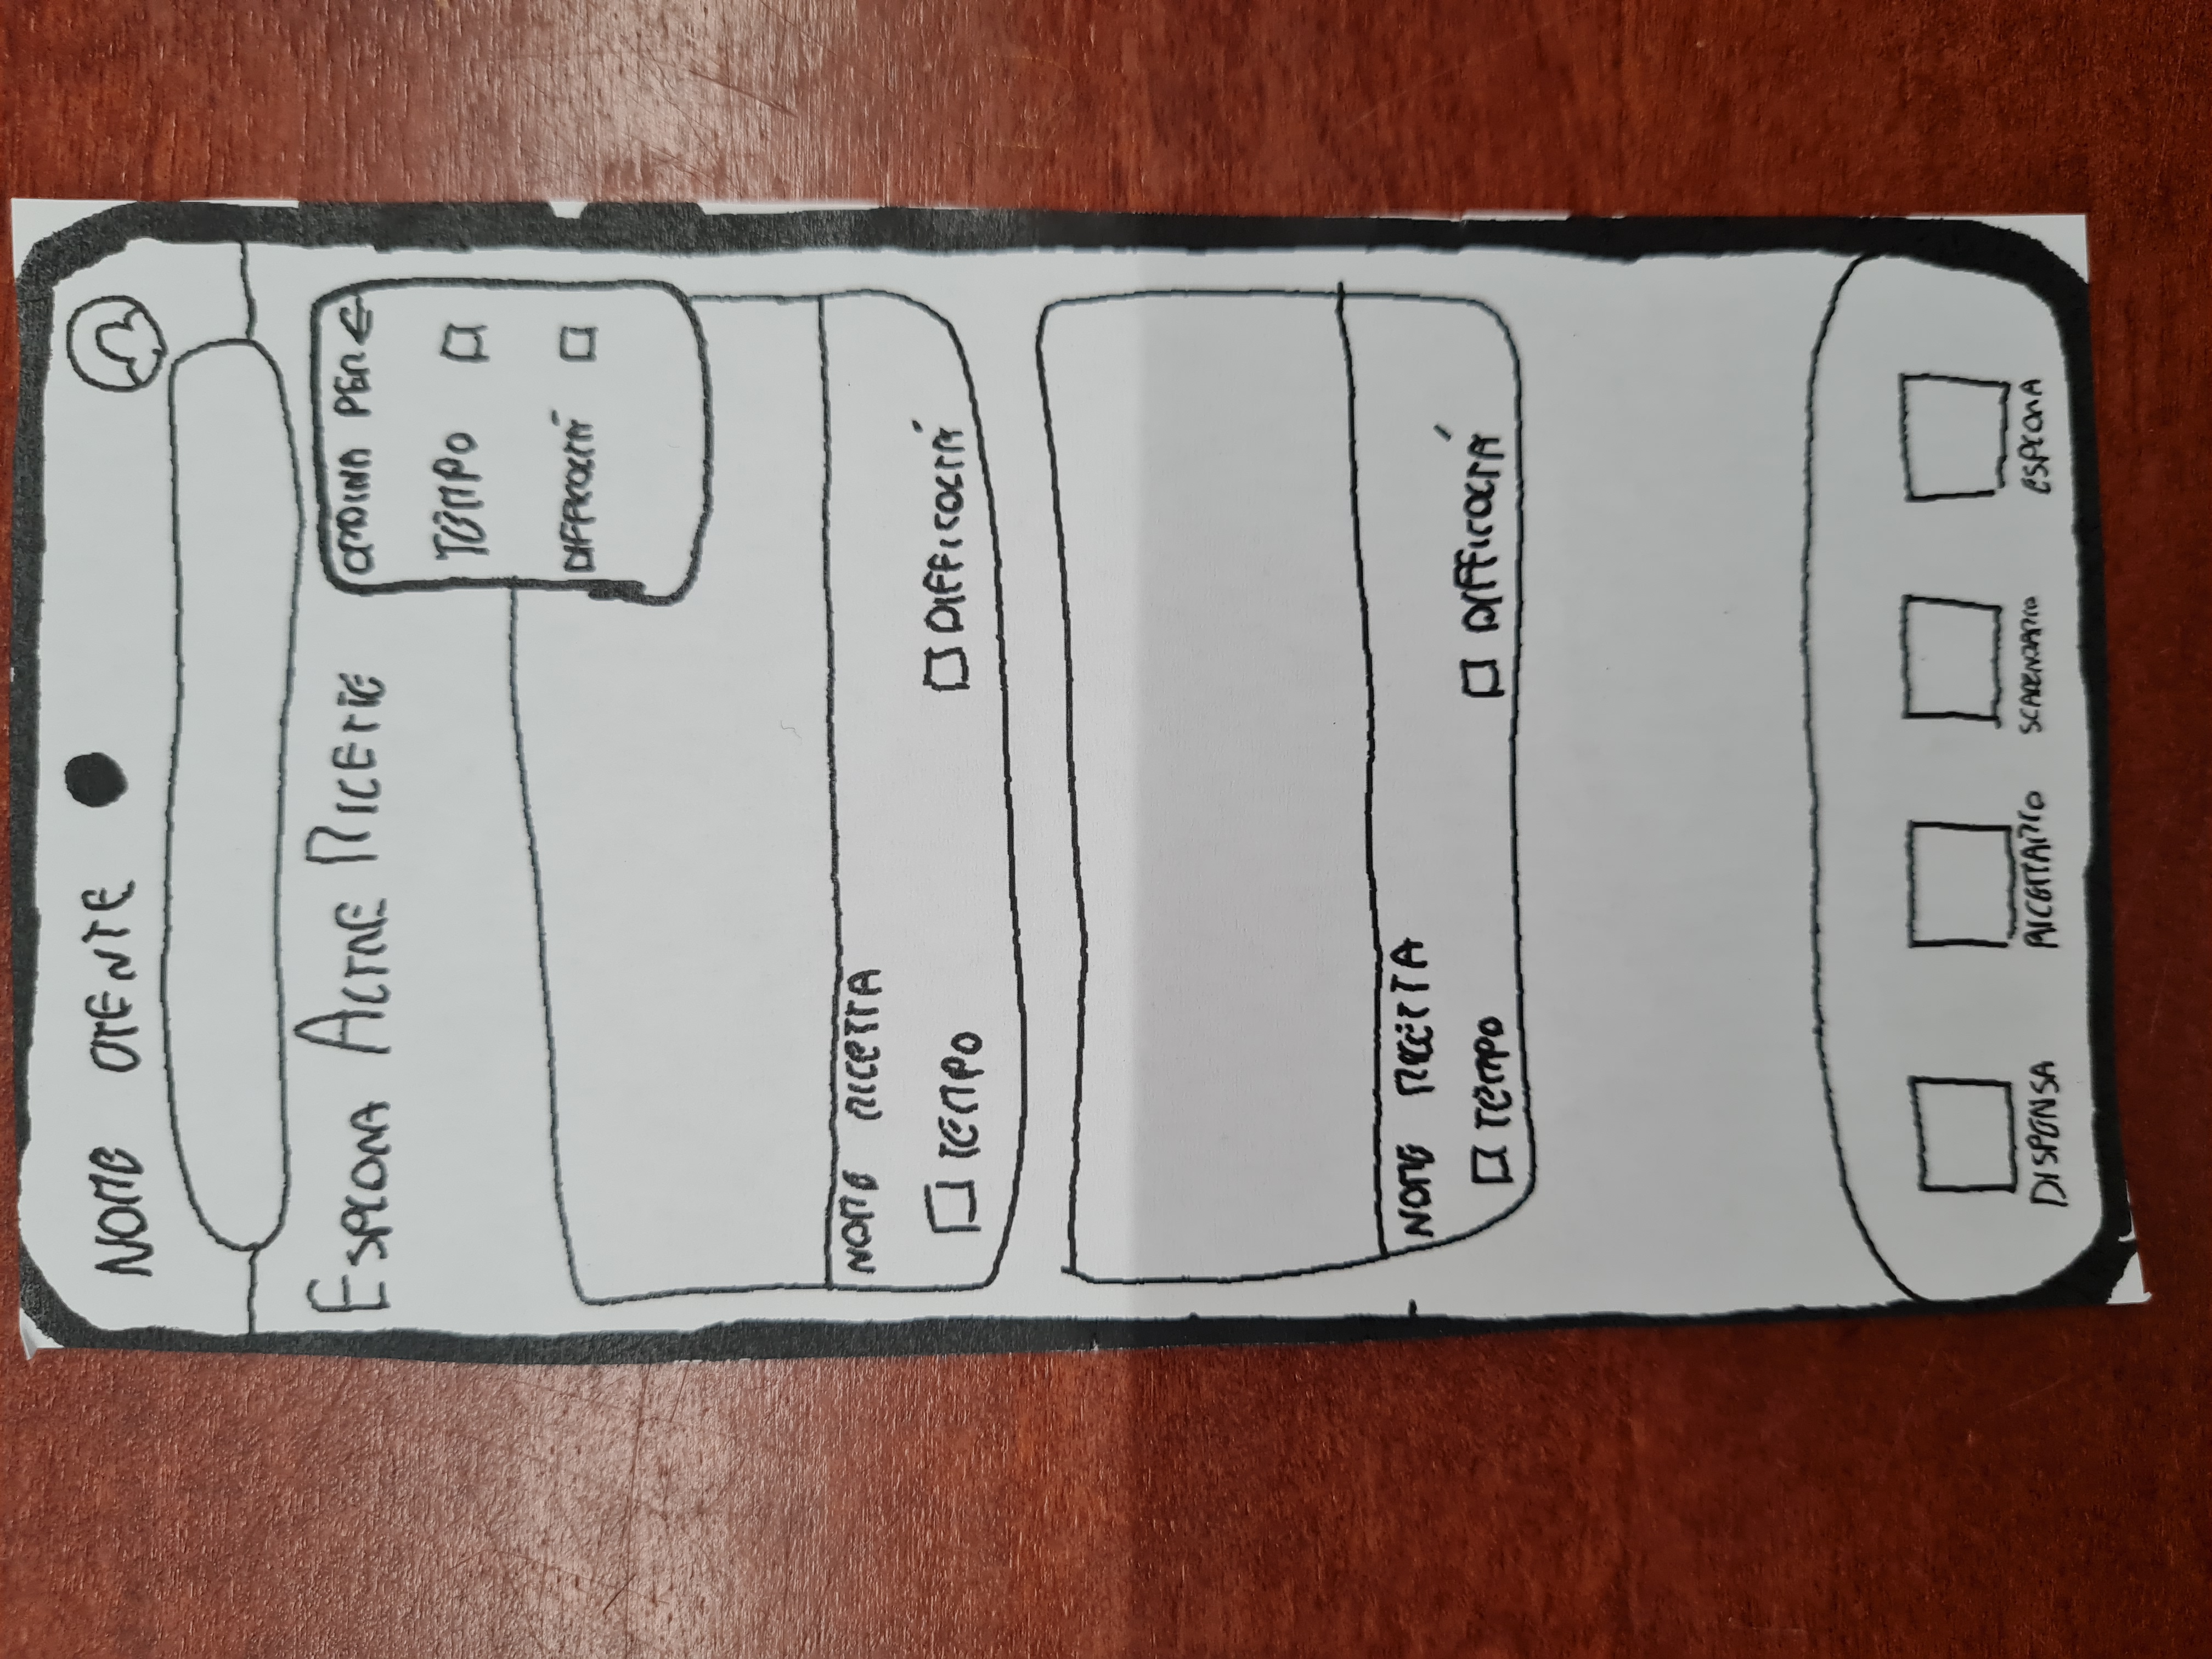 NOME UTENTE
ESPLORA ALTRE RICETTE
ORDINA PER
TEMPO
DIFFICOLTÁ
NOME RICETTA
TEMPO DIFFICOLTÁ
NOME RICETTA
TEMPO DIFFICOLTÁ
DISPENSA RICETTARIO SCADENZARIO ESPLORA